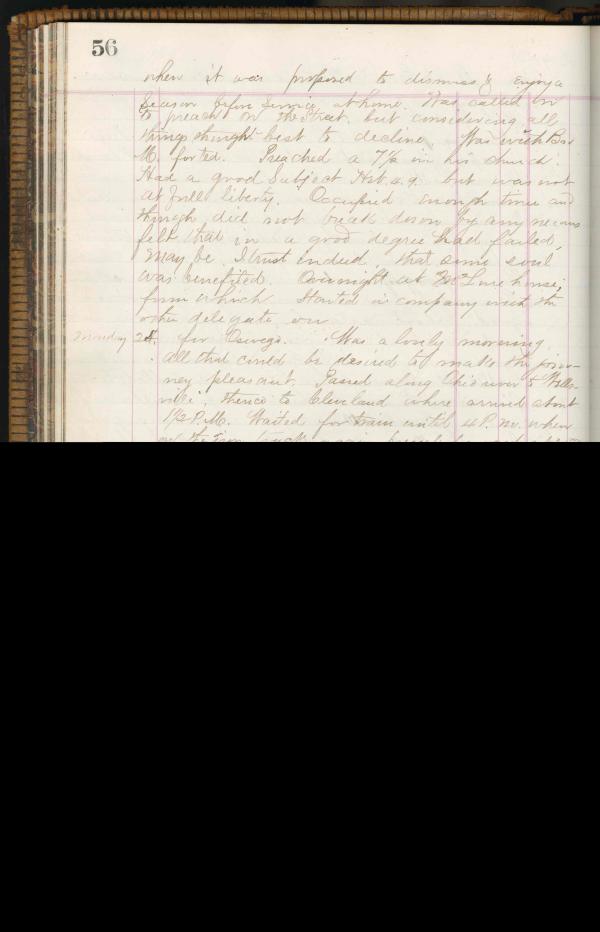 56
when it was proposed to dismiss & enjoy a
season before service at home. Was called on
to preach on the Street. but considering all
things thought best to decline. Was with Bro
M. for tea. Preached a 7½ in his church.
Had a good subject Heb. 2.9. but was not
at full liberty. Occupied enough time and
though did not break down by any means
felt that in a good degree had failed,
may be, I trust indeed, that some soul
was benefited. Overnight at McLure house;
from which Started in company with the
other delegate on
Monday 28. for Oswego. Was a lovely morning
all that could be desired to make the jour-
ney pleasant. Passed along Ohio river to Wells-
ville; thence to Cleveland where arrived about
1½ P.M. Waited for train until 4 P.M. when